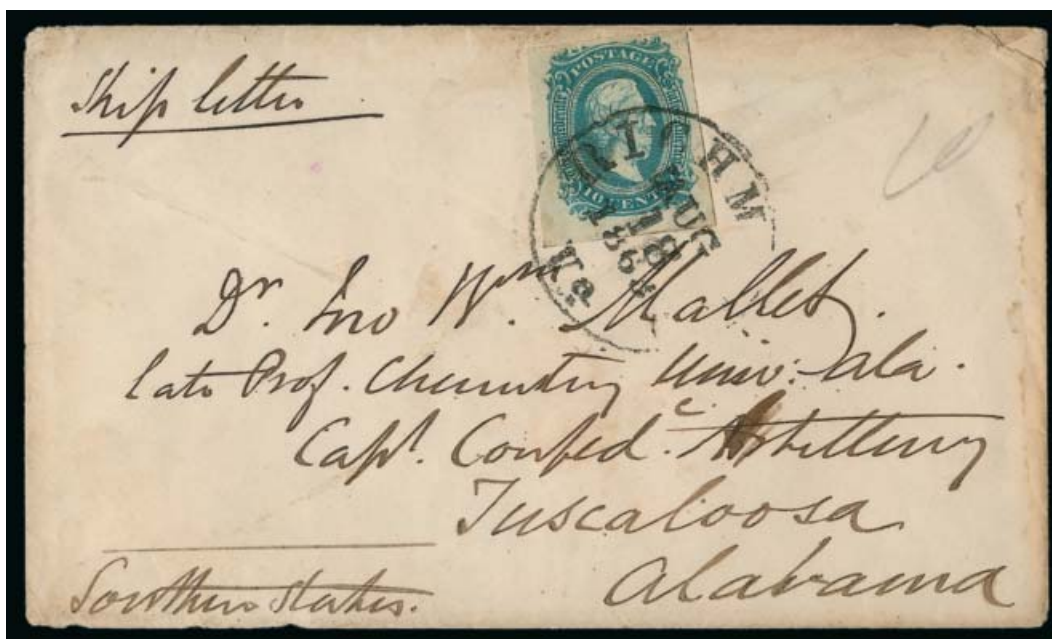 Ship letter
POSTAGE
CENTS
RICHM
AUG
18
Va.
Dr. Jno Wm. Mallet.
late Prof. Chemistry Univ: Ala.
Capt. Confed. Artillery
Tuscaloosa
Alabama
Southern States.